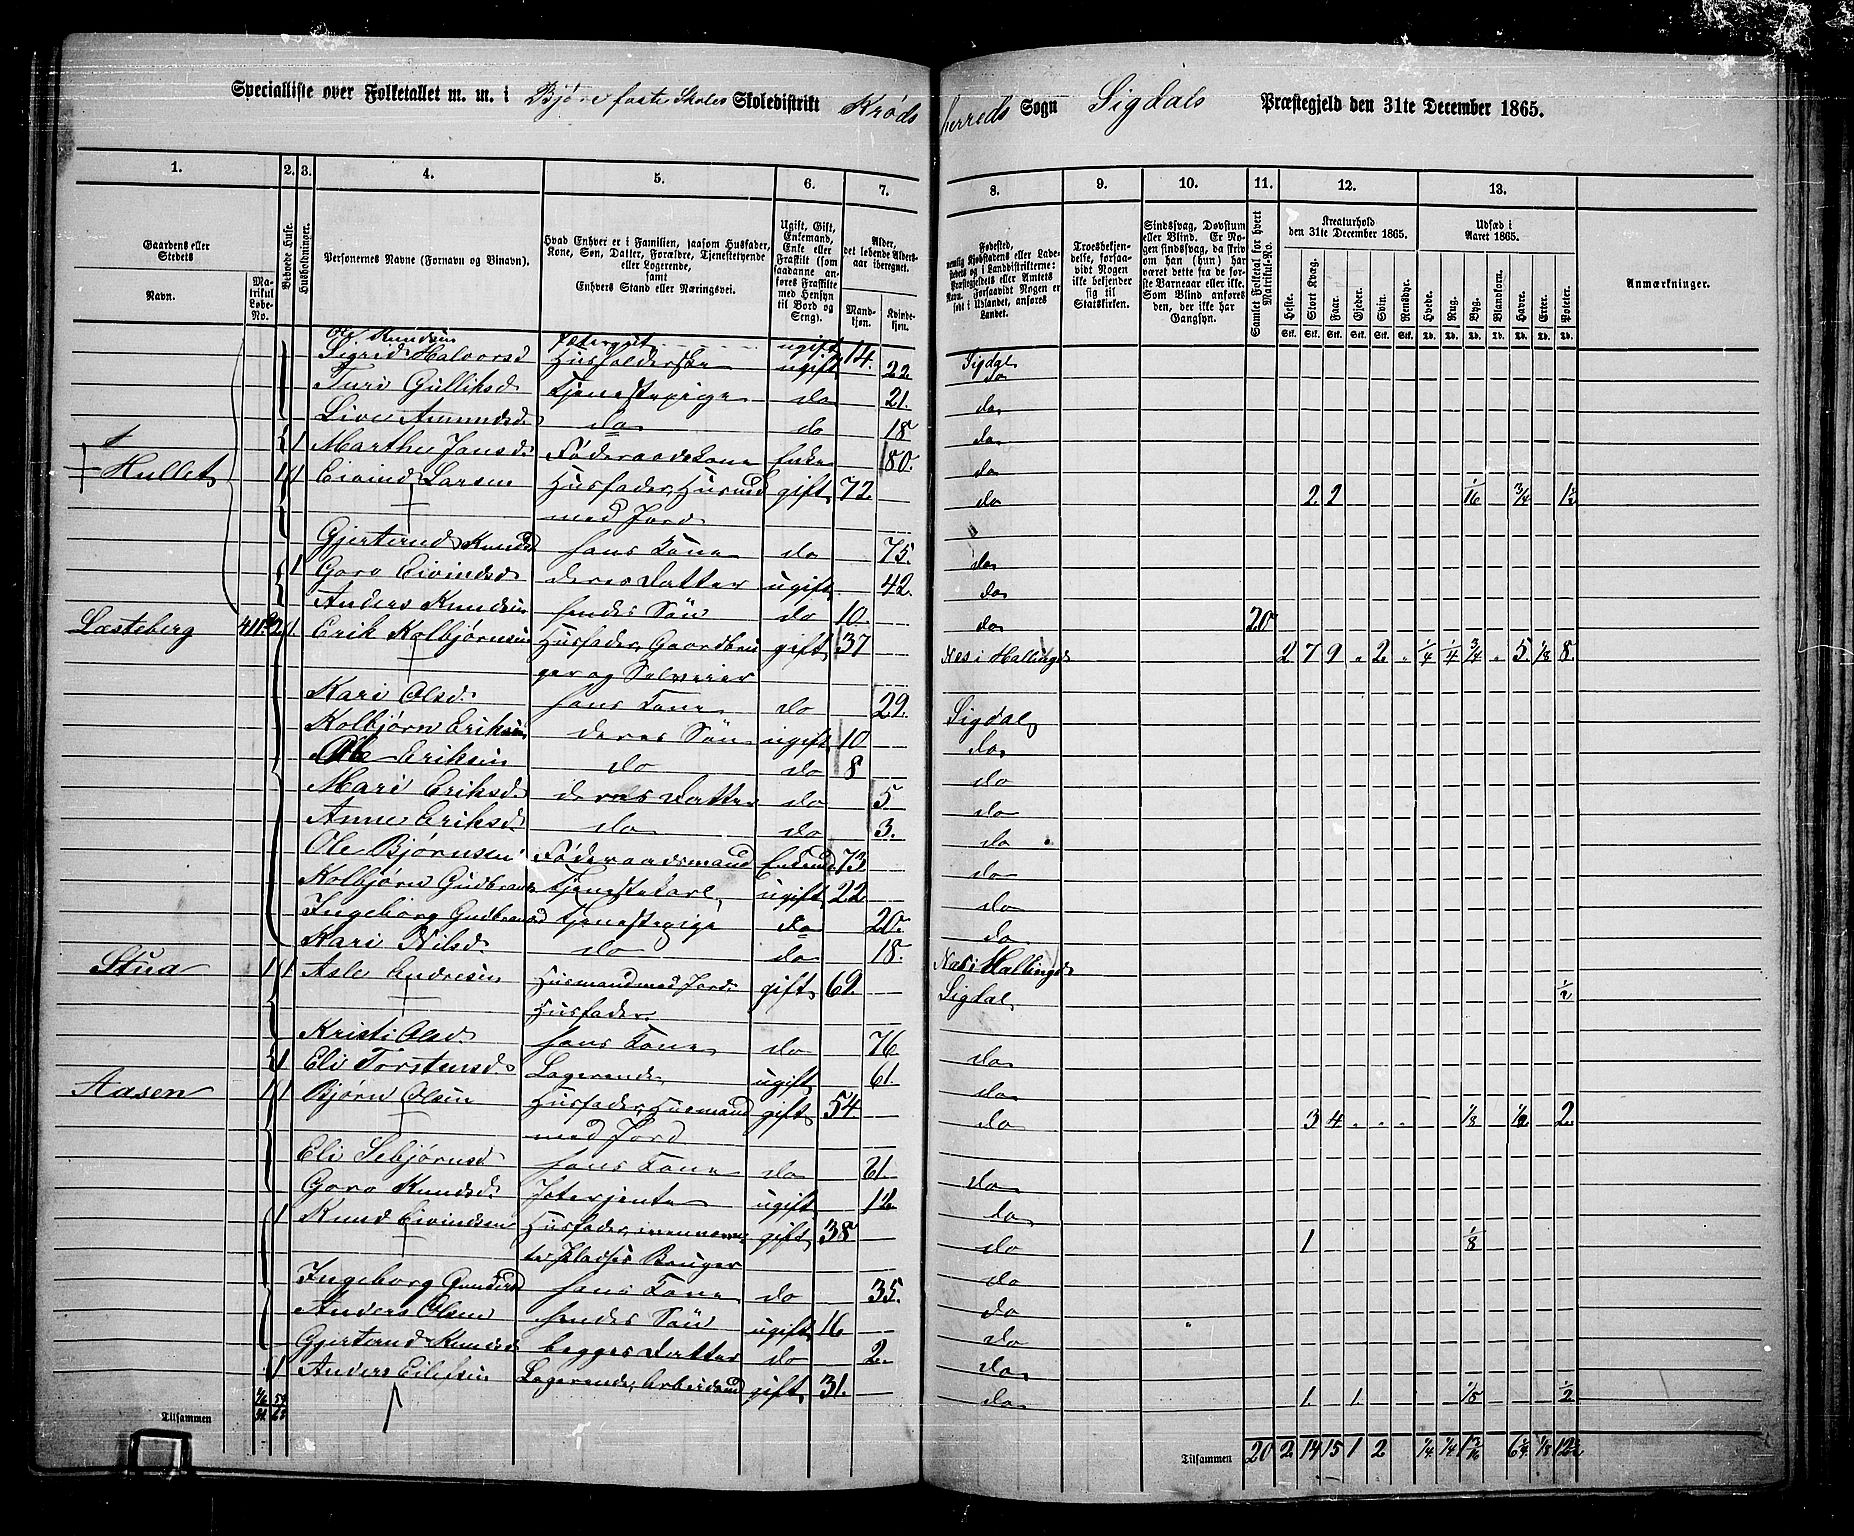 Specialliste over Folketallet m. m. i Bjøre faste Skoles Skoledistrikt Krøds
herreds Sogn Sigdals Præstegjeld den 31te December 1865.
1. 2. 3. 4. 5. 6. 7.
8. 9. 10. 11. 12. 13.
Gaardens eller Stedets Navn. Matrikul Løbe-No. Beboede Huse. Husholdninger. Personernes Navne (Fornavn og Binavn).
Hvad Enhver er i Familien, saasom Husfader, Kone, Søn, Datter, Forældre, Tjenestetyende eller Logerende, samt Enhvers Stand eller Næringsvei.
Ugift, Gift, Enkemand, Enke eller Fraskilt (som saadanne anføres Fraskilte med Hensyn til Bord og Seng).
Alder, det løbende Alders-aar iberegnet. Mandkjøn. Kvindekjøn.
Fødested, nemlig Kjøbstadens eller Ladestedets og i Landdistrikterne: Præstegjeldets eller Amtets Navn. Forsaavidt Nogen er født i Udlandet, anføres Landet.
Troesbekjendelse, forsaavidt Nogen ikke bekjender sig til Statskirken.
Sindssvag, Døvstum eller Blind. Er Nogen sindssvag, da skriv om han (hun) har været dette fra de første Barneaar eller ikke. Som Blind anføres den, der ikke har Gangsyn.
Samlet Folketal for hvert Matrikul-No.
Kreaturhold den 31te December 1865. Heste. Stort Kvæg. Faar. Gjeder. Svin. Rensdyr.
Udsæd i Aaret 1865. Hvede. Rug. Byg. Blandkorn. Havre. Erter. Poteter.
Anmærkninger.
Ole Knudsen ugift 14. Sigdal
Sigrid Halvorsd Husholderske ugift 22 do
Turi Gulliksd Tjenestepige do 21. do
Live Amundsd. do do 18 do
1 Marthe Jonsd. Føderaadskone Enke 80. do
Hullet 1 1 Eivind Larsen Husfader, Husmd gift 72 do 2 2 1/16 3/4 1 1/2
med Jord
Gjertrud Knudsd hans Kone do 75. do
1 Goro Eivindsd deres Datter ugift 42. do
Anders Knudsen hendes Søn do 10. do 20
Læsteberg 2 1 Erik Kolbjørnsen Husfader, Gaardbru gift 37 Nes i Hallingd 2 7 9 " 2 " 1/4 1/4 3/4 " 5 1/8 8
ger og Selveier
Kari Olsd. hans Kone do 29. Sigdal
Kolbjørn Eriksen deres Søn ugift 10 do
Ole Eriksen do do 8 do
Mari Eriksd. deres Datter do 5 do
Anne Eriksd. do do 3. do
Ole Bjørnsen Føderaadsmand Enkemd 73 do
Kolbjørn Gudbrands Tjenestekarl, ugift 22 do
Ingeborg Gudbrandsd Tjenestepige do 20. do
Kari Nilsd. do do 18. Næs i Hallingd
Stua 1 1 Asle Andresen Husmand med Jord gift 69. Sigdal 1/2
Husfader.
Kristi Olsd. hans Kone do 76 do
1 Eli Torstensd. Logerende ugift 61. do
Aasen 1 1 Bjørn Olsen Husfader, Husmand gift 54 do 3 4 " " " 1/8 1/2 2
med Jord
Eli Sebjørnsd hans Kone do 61. do
Goro Knudsd. ugift 12 do
1 Knud Eivindsen Husfader, gift 38 do 1 1/8
Pladses Bruger
Ingeborg hans Kone do 35. do
Anders Olsen hendes Søn ugift 16 do
Gjertrud Knudsd begges Datter do 2. do
1 Anders Eilefsen Logerende, Arbeidsmd gift 31. do 1. 1. 1/8 1/2
Tilsammen
Tilsammen 20 2 14 15 1 2 1/4 1/4 1 3/16 6 1/4 1/8 12 1/2